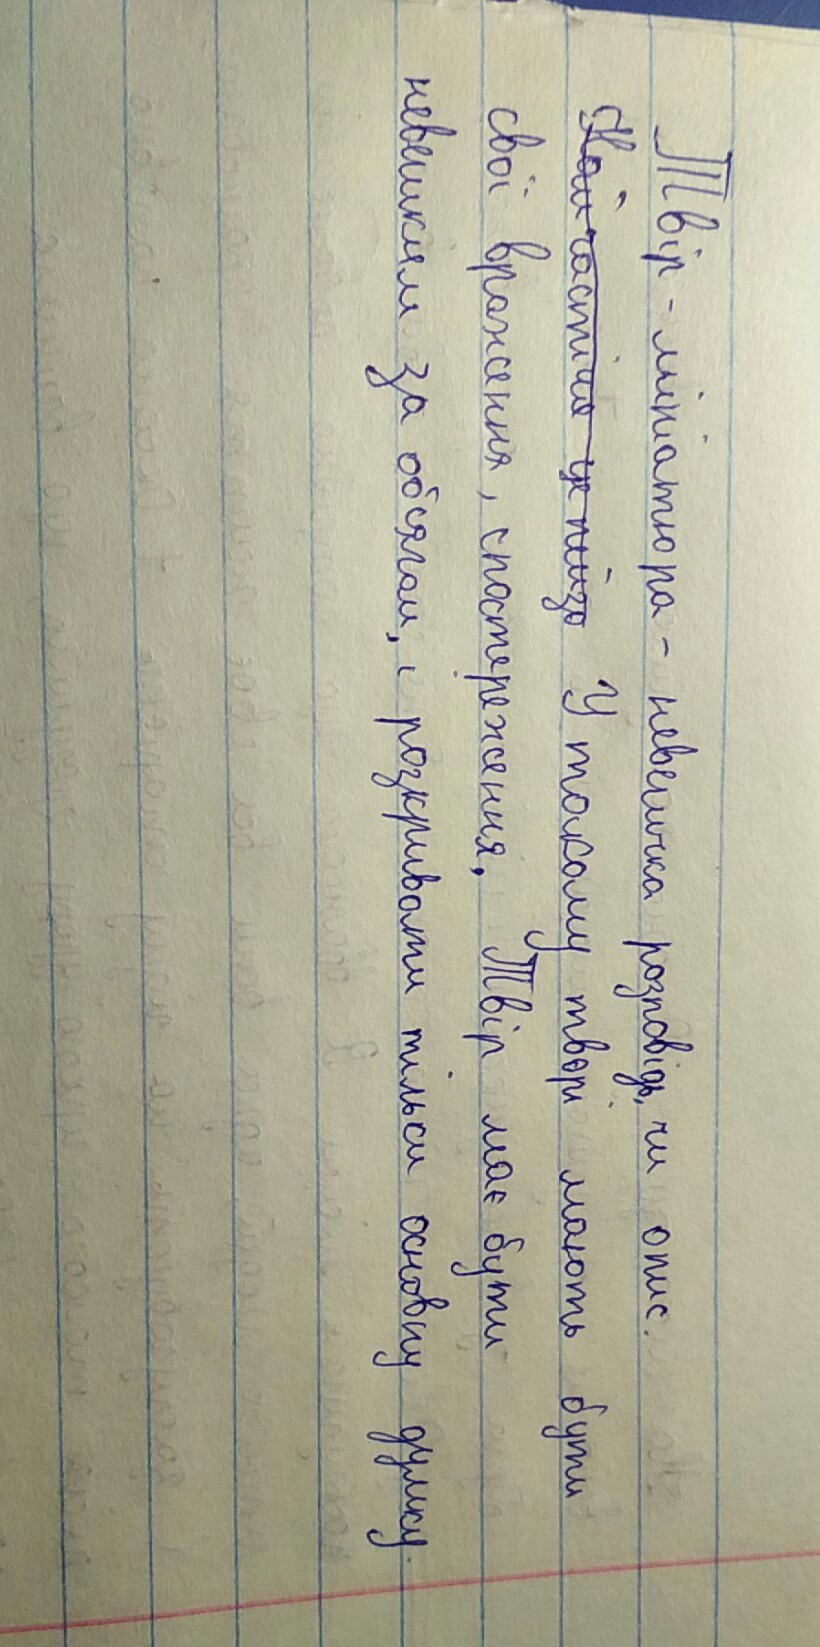 Твір - мініатюра - невеличка розповідь, чи опис.
Найчастіше це У такому творі мають бути
свої враження, спостереження, Твір має бути
невеликим за обсягом, і розкривати тільки основну думку.